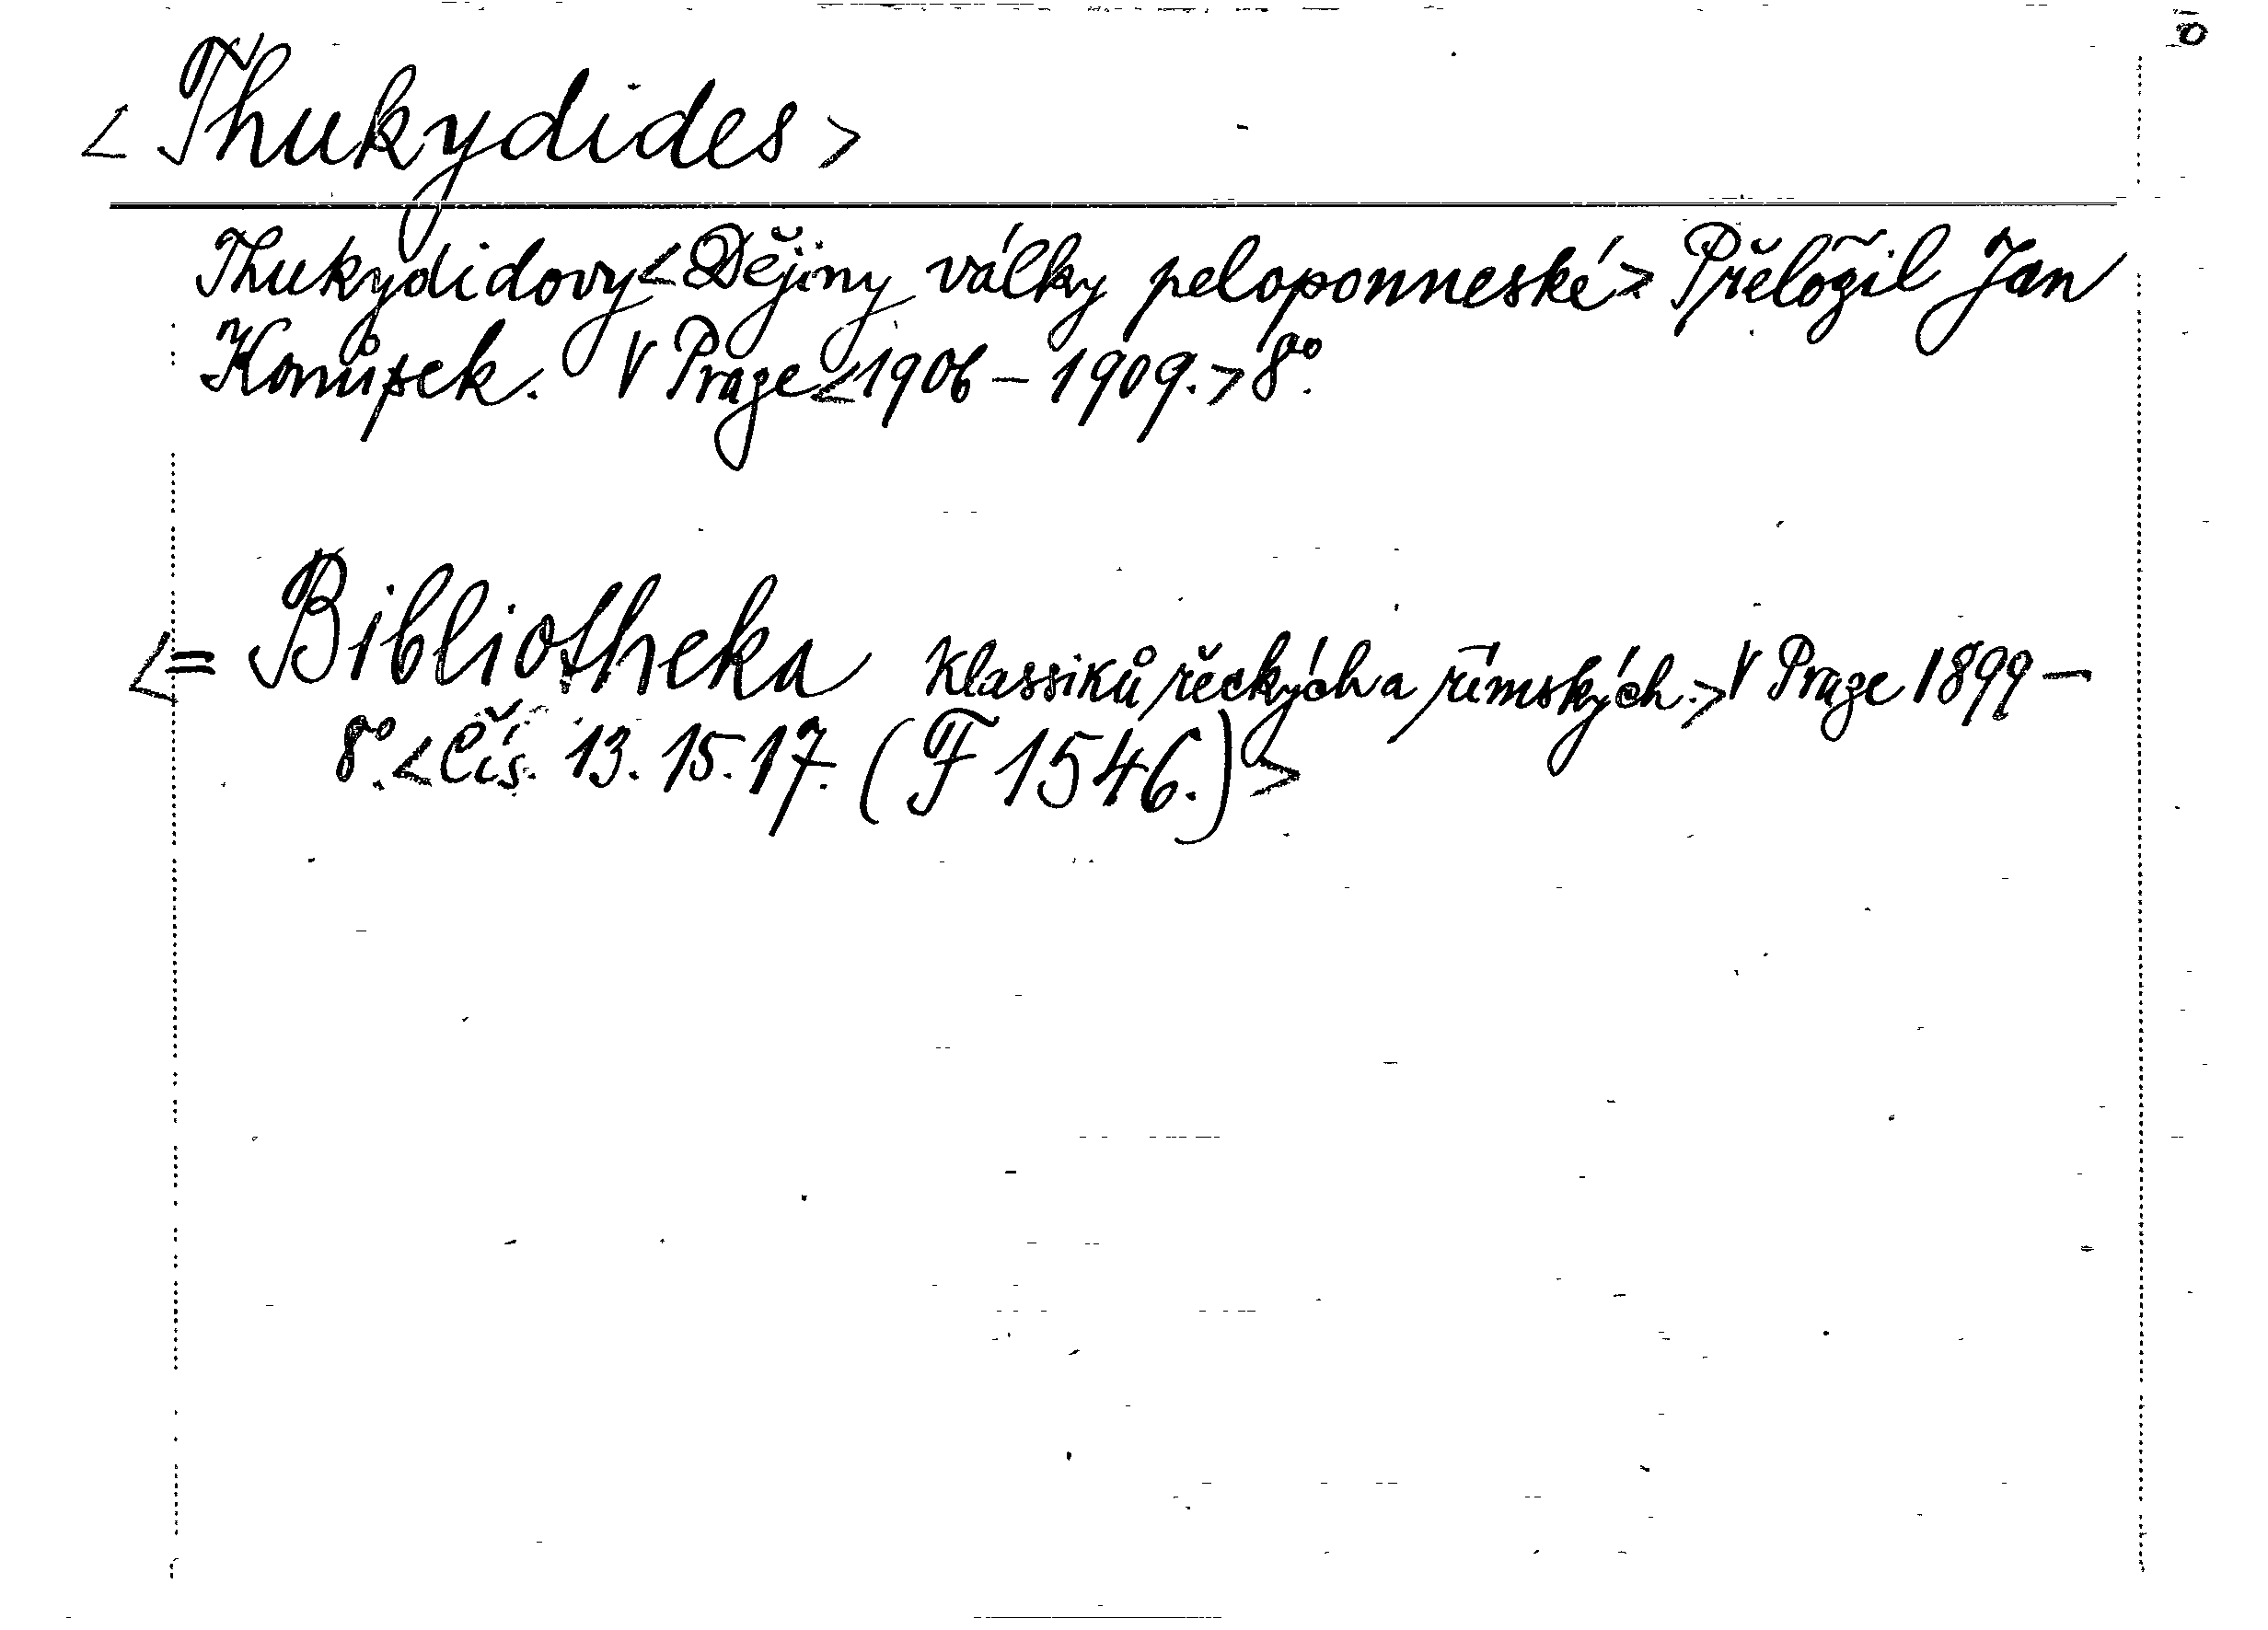 < Thukydides >
Thukydidovy < Dějiny války peloponneské > Přeložil Jan
Konůpek. V Praze < 1906 - 1909. > 8°.
<= Bibliotheka klassiků řeckých a římských. > V Praze 1899 -
8°. < Čís. 13. 15. 17. (F 1546.) >